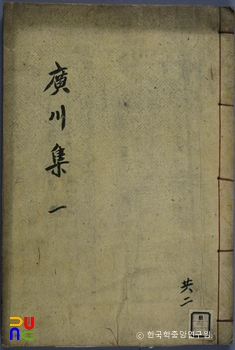 廣川集 一
共二
© 한국학중앙연구원